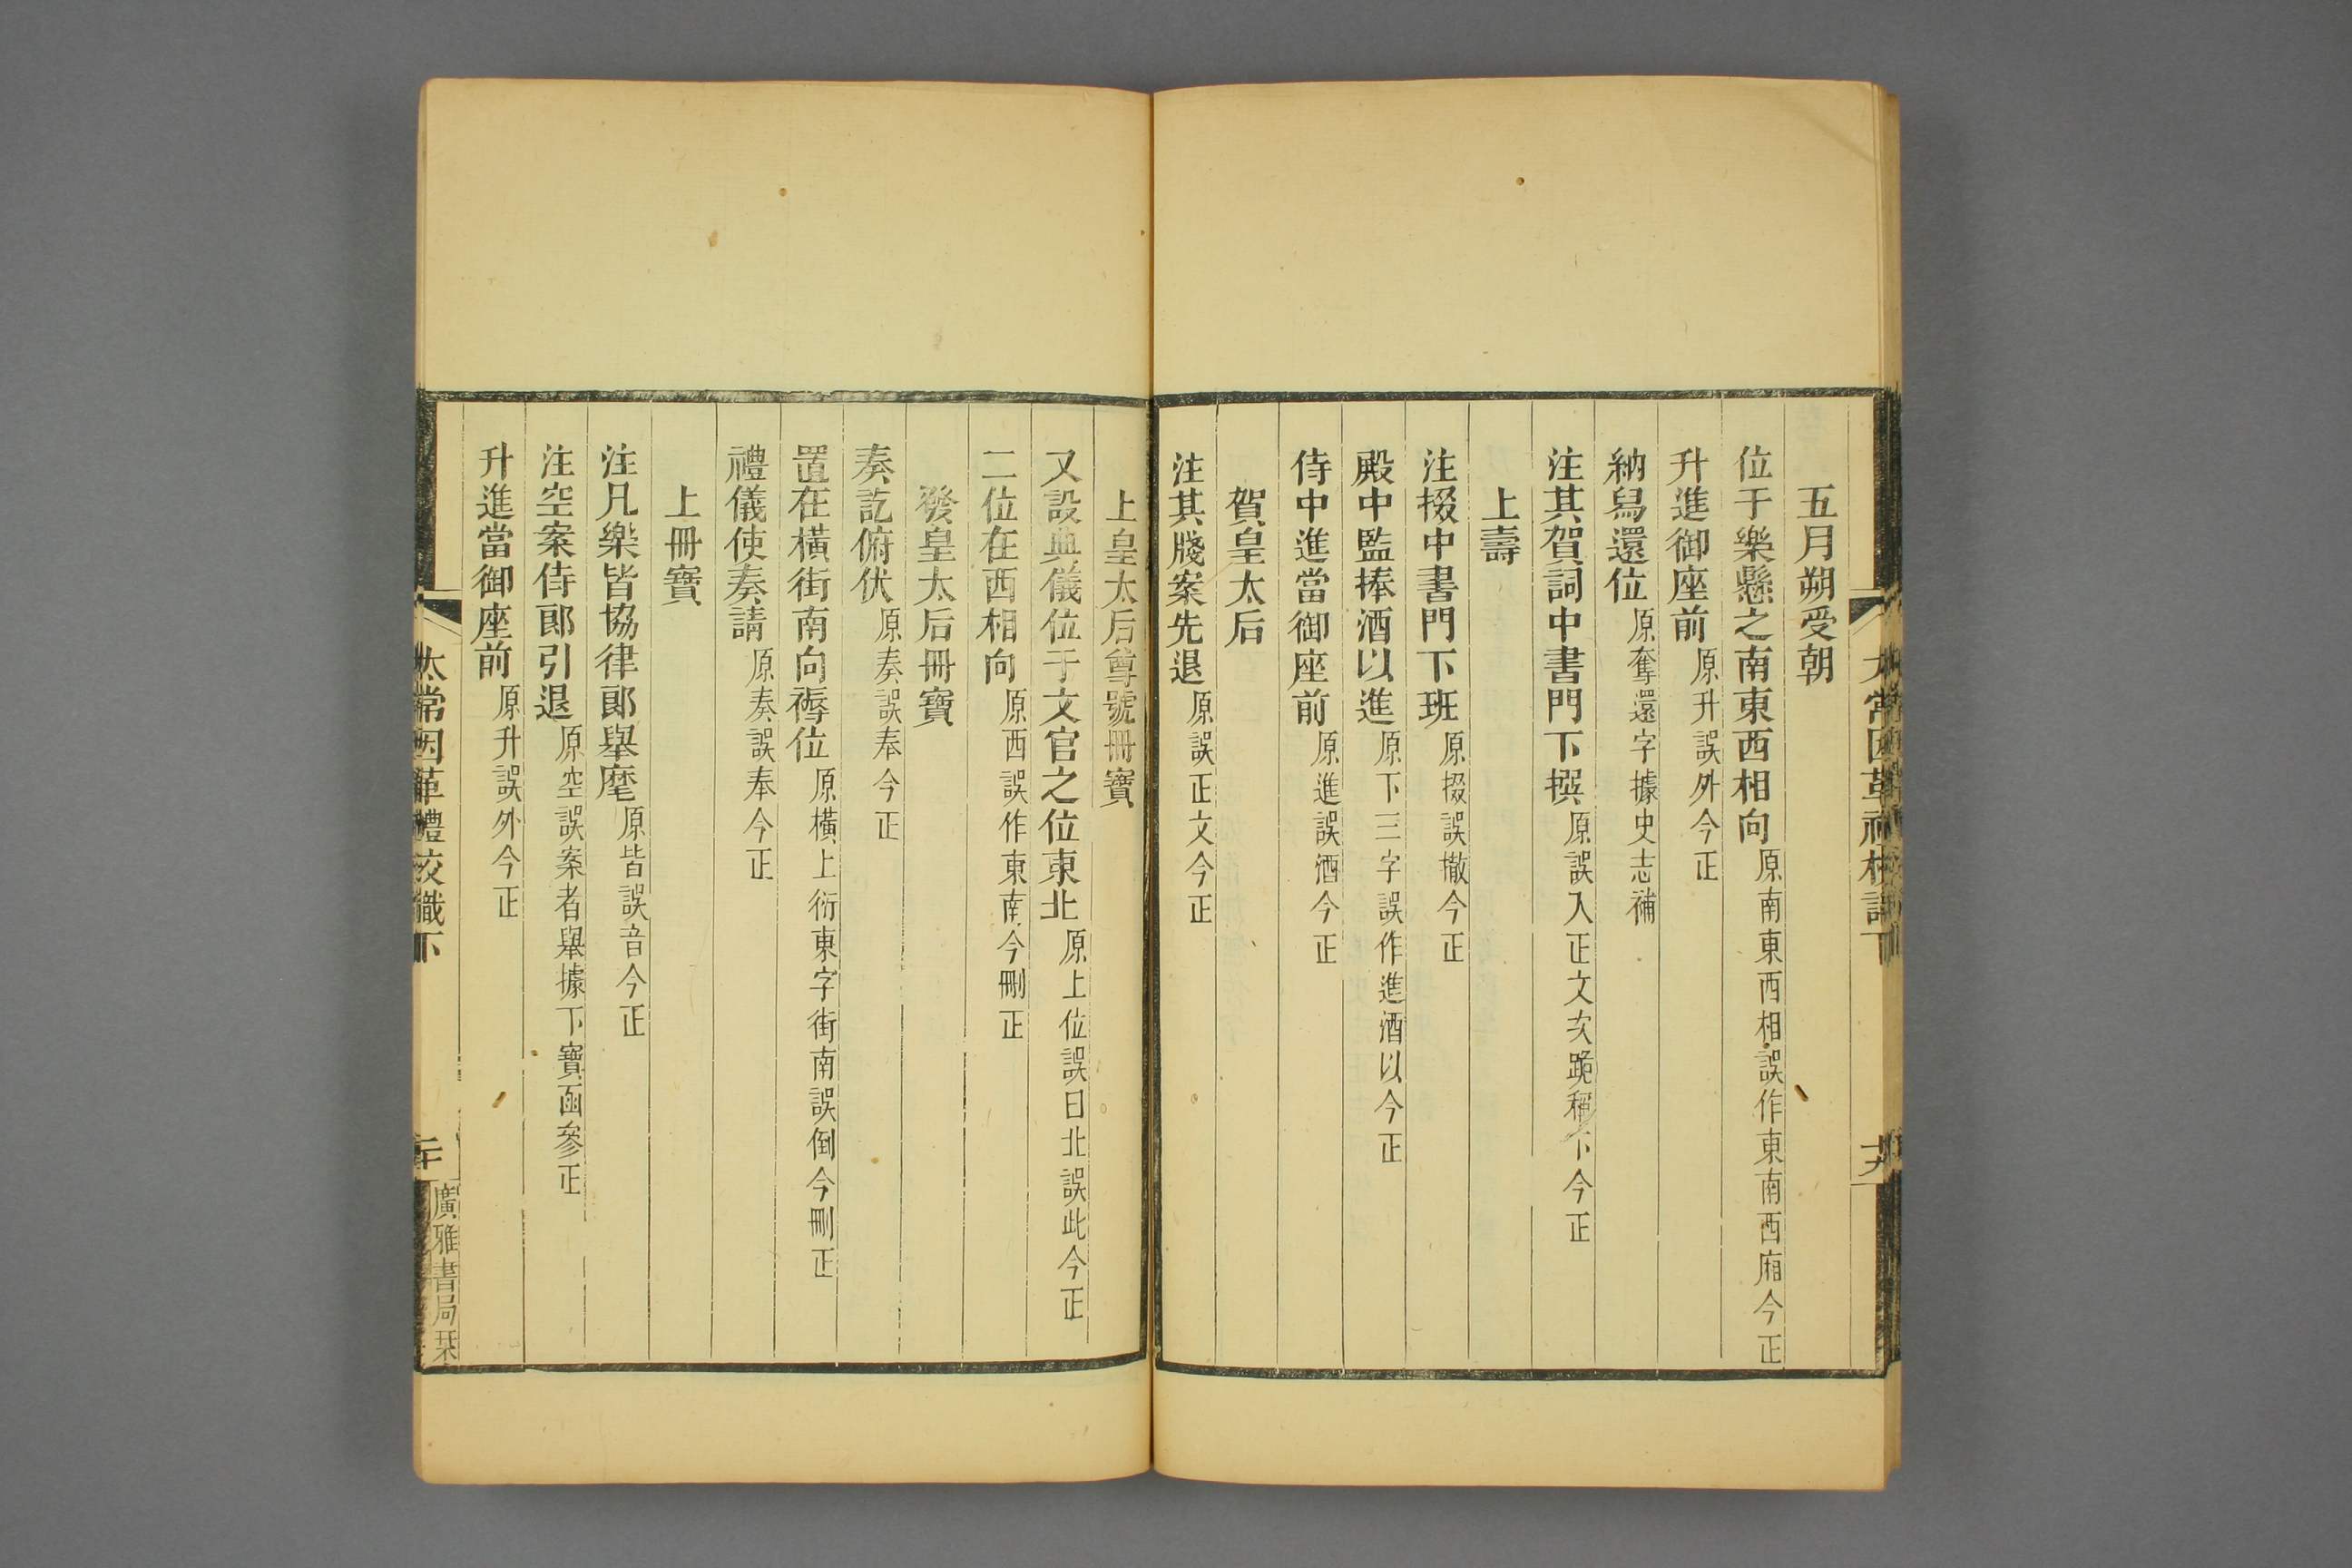 五月朔受朝
位于樂懸之南東西相向原南東西相誤作東南西廂今正
升進御座前原升誤外今正
納舄還位原奪還字據史志補
注其賀詞中書門下撰原誤入正文次跪稱下今正
上壽
注掇中書門下班原掇誤撤今正
殿中監捧酒以進原下三字誤作進酒以今正
侍中進當御座前原進誤酒今正
賀皇太后
注其牋案先退原誤正文今正
上皇太后尊號冊寶
又設典儀位于文官之位東北原上位誤日北誤此今正
二位在西相向原西誤作東南今刪正
發皇太后冊寶
奏訖俯伏原奏誤奉今正
置在橫街南向褥位原橫上衍東字街南誤倒今刪正
禮儀使奏請原奏誤奉今正
上冊寶
注凡樂皆協律郎舉麾原皆誤音今正
注空案侍郎引退原空誤案者舉據下寶函參正
升進當御座前原升誤外今正
太常因革禮校識下
二十
廣雅書局栞